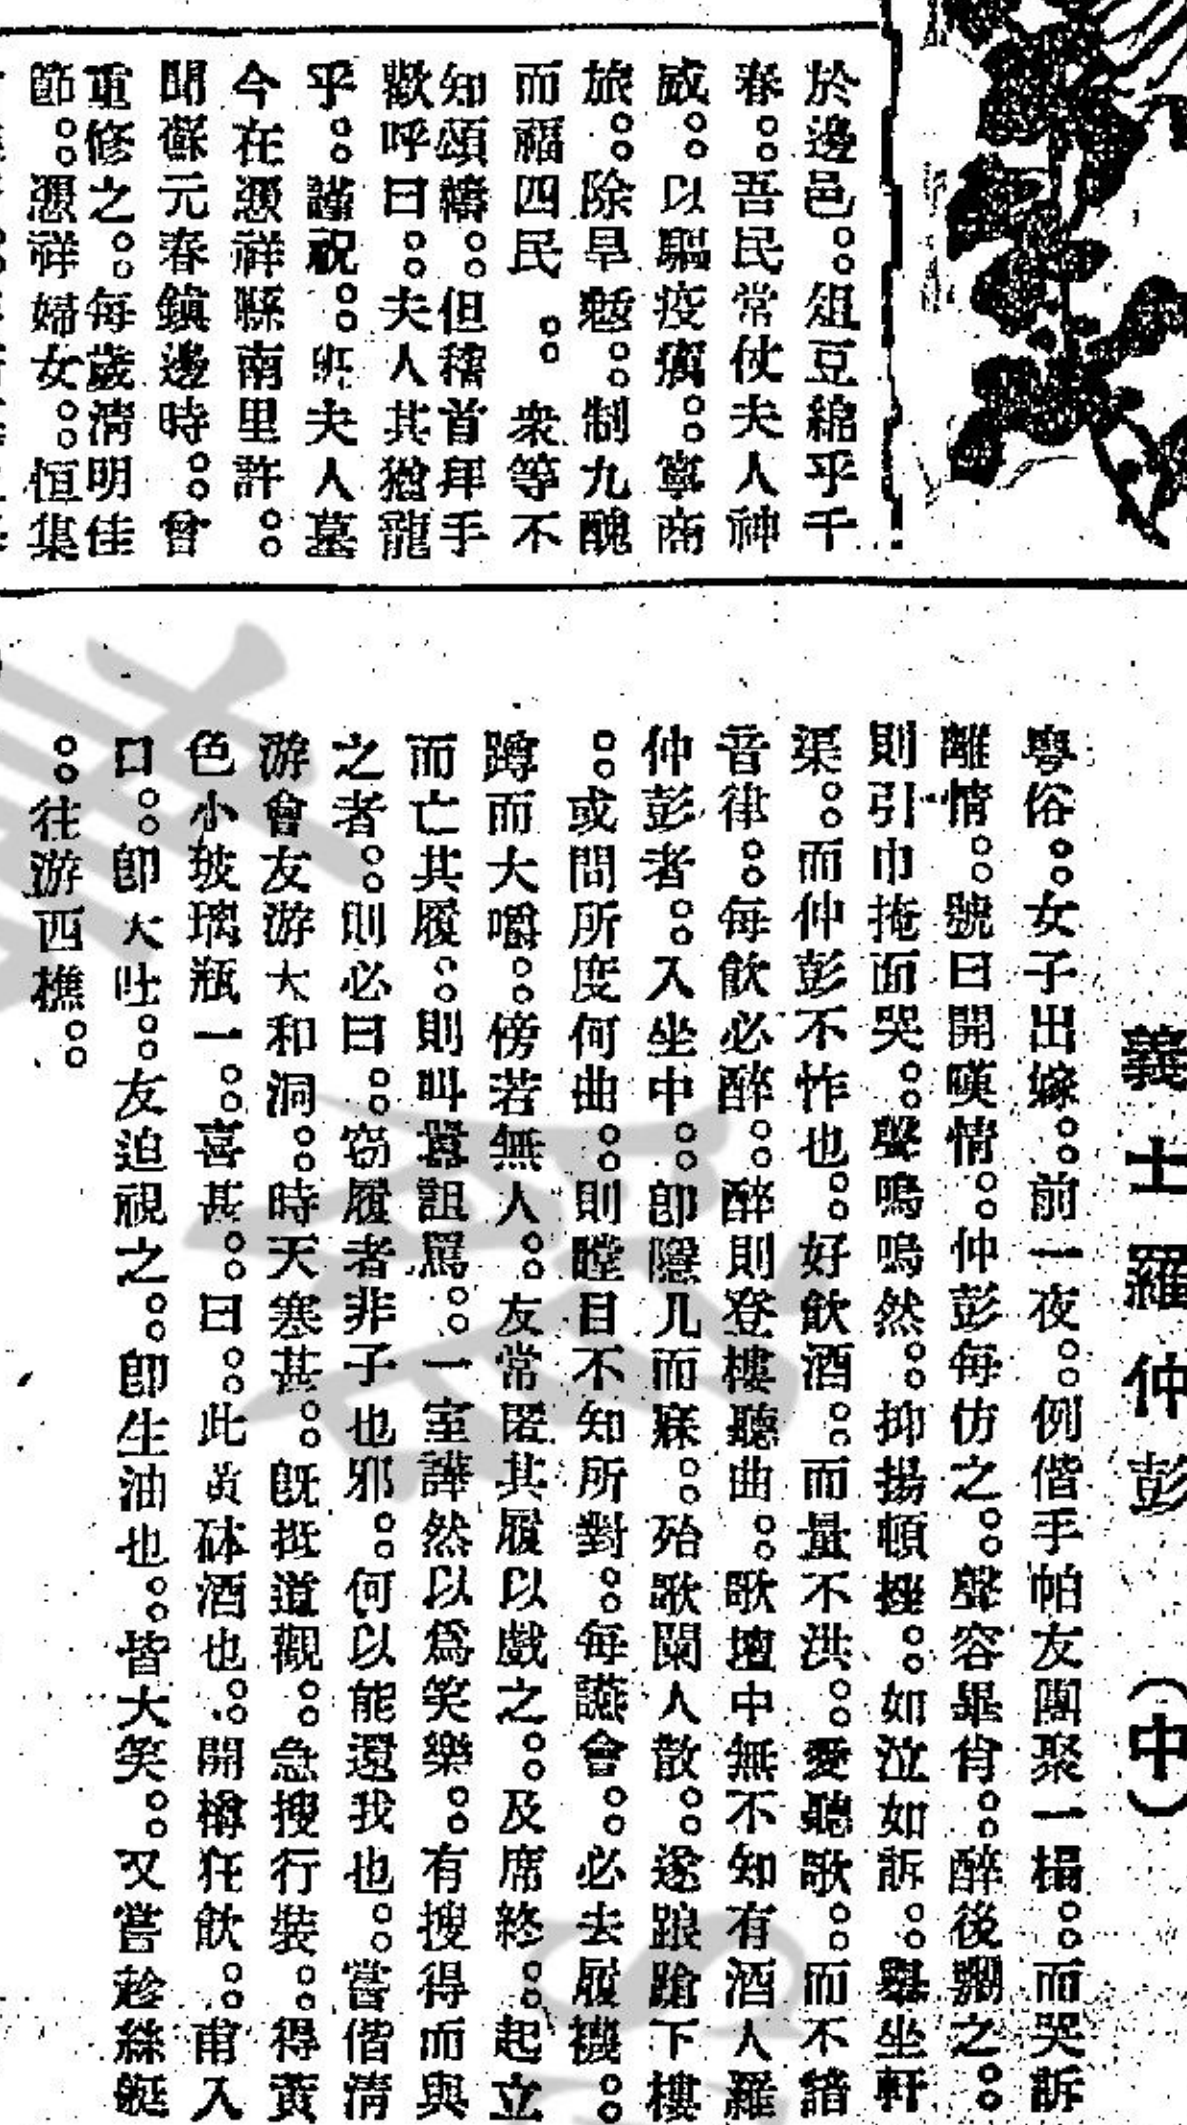 於邊邑。。俎豆綿乎千
春。。吾民常仗夫人神
威。。以驅疫癘。。寧商
旅。。除旱魃。。制九醜
而福四民。。衆等不
知頌禱。。但稽首拜手
歡呼曰。。夫人其猶龍
乎。。謹祝。。班夫人墓
今在憑祥縣南里許。。
聞蘇元春鎮邊時。。曾
重修之。。每歲淸明佳
節。。憑祥婦女。。恒集
義士羅仲彭（中）
粵俗。。女子出嫁。。前一夜。。例偕手帕友團聚一榻。。而哭訴
離情。。號曰開嘆情。。仲彭每仿之。。聲容畢肖。。醉後嬲之。。
則引巾掩面哭。。聲嗚嗚然。。抑揚頓挫。。如泣如訴。。舉坐軒
渠。。而仲彭不怍也。。好飲酒。。而量不洪。。愛聽歌。。而不諳
音律。。每飲必醉。。醉則登樓聽曲。。歌壇中無不知有酒人羅
仲彭者。。入坐中。。卽隱几而寐。。殆歌闌人散。。遂踉蹌下樓
。。或問所度何曲。。則瞠目不知所對。。每讌會。。必去履襪。。
蹲而大嚼。。傍若無人。。友常匿其履以戲之。。及席終。。起立
而亡其履。。則叫囂詛罵。。一室譁然以爲笑樂。。有搜得而與
之者。。則必曰。。窃履者非子也邪。。何以能還我也。。嘗偕淸
游會友游大和洞。。時天寒甚。。旣抵道觀。。急搜行裝。。得黃
色小玻璃瓶一。。喜甚。。曰。。此黃砵酒也。。開樽狂飲。。甫入
口。。卽大吐。。友迫視之。。卽生油也。。皆大笑。。又嘗趁絲艇
。。往游西樵。。